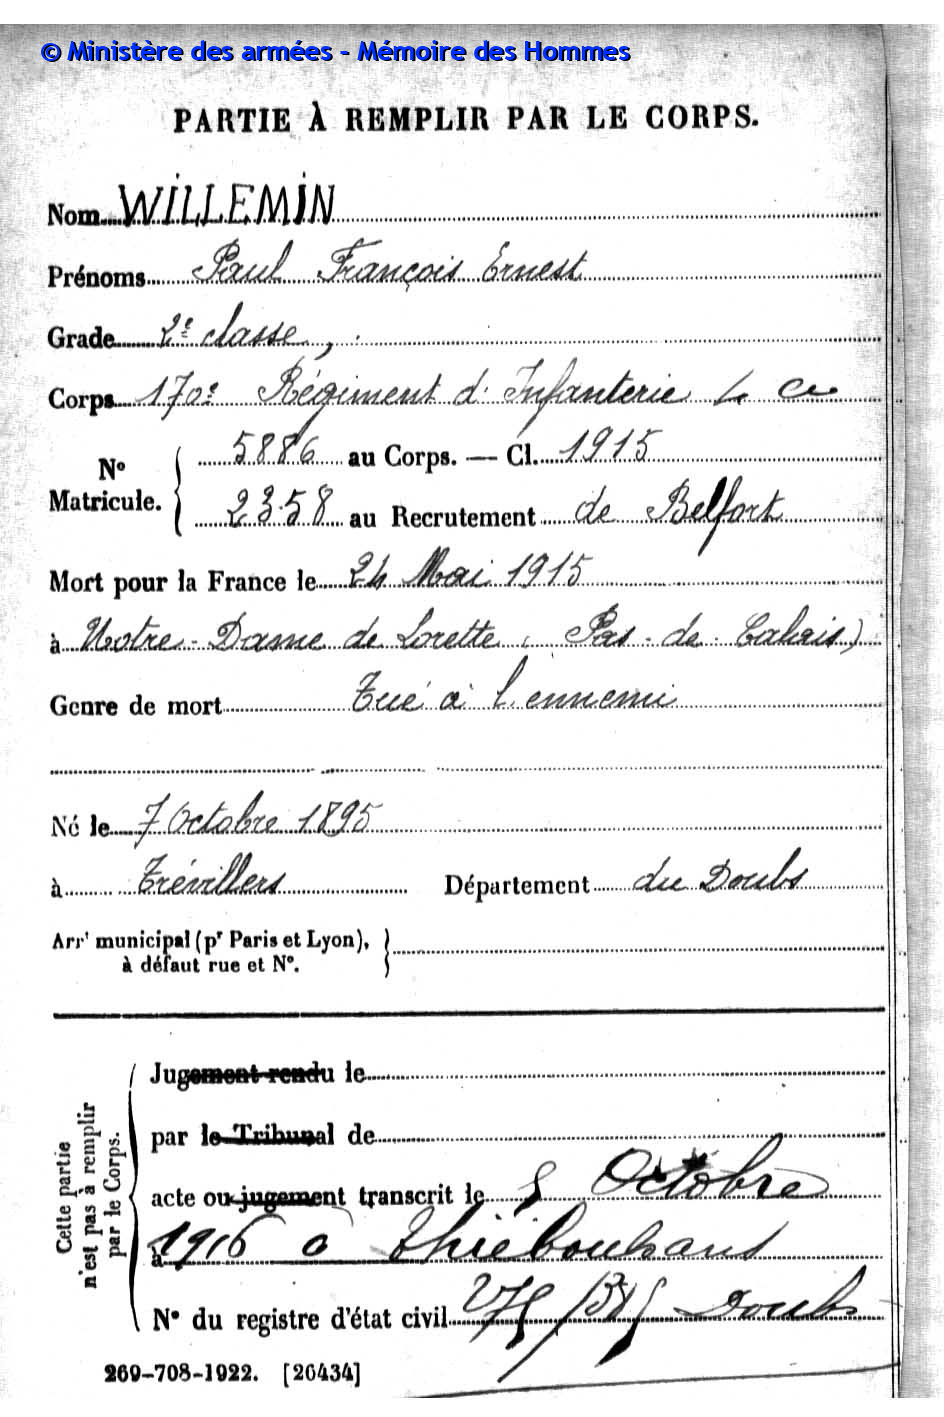 © Ministère des armées - Mémoire des Hommes
PARTIE À REMPLIR PAR LE CORPS.
Nom WILLEMIN
Prénoms Paul François Ernest
Grade 2e classe,
Corps 170e Régiment d'Infanterie 4 Cie
No Matricule. { 5886 au Corps. — Cl. 1915
2358 au Recrutement de Belfort
Mort pour la France le 24 Mai 1915
à Notre-Dame de Lorette (Pas-de-Calais)
Genre de mort Tué à l'ennemi
Né le 7 Octobre 1895
à Trévillers Département du Doubs
Arrt municipal (pr Paris et Lyon),
à défaut rue et No.
Cette partie
n'est pas à remplir
par le Corps.
Jugement rendu le
par le Tribunal de
acte ou jugement transcrit le 8 Octobre
à 1916 à Thiébouhans
No du registre d'état civil Doubs
269-708-1922. [26434]